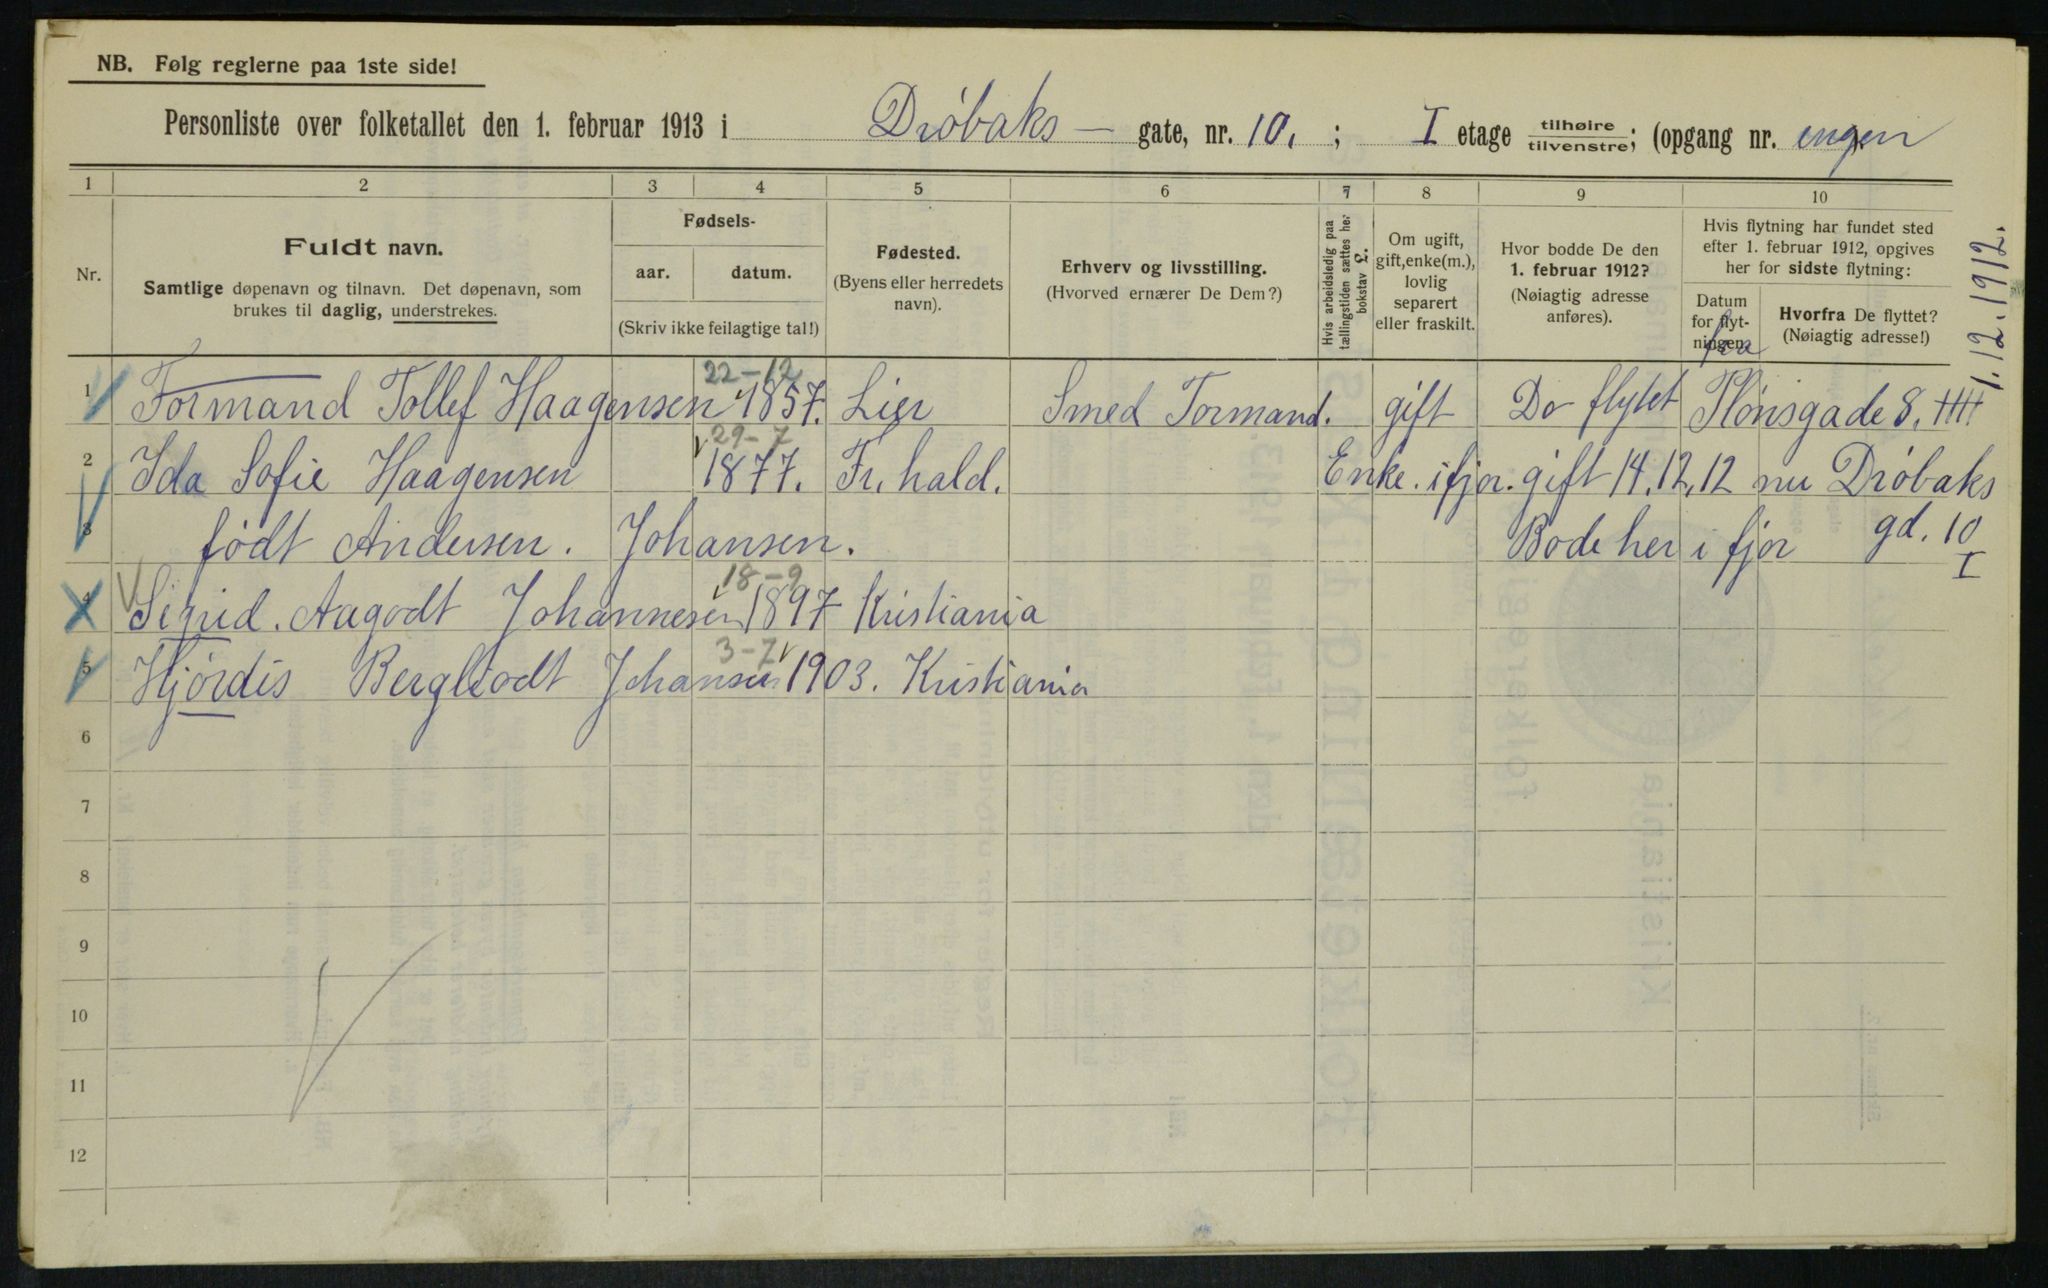 NB. Følg reglerne paa 1ste side!
Personliste over folketallet den 1. februar 1913 i Drøbaks — gate, nr. 10. ; I etage tilhøire tilvenstre; (opgang nr. ingen
1 2 3 4 5 6 7 8 9 10
Nr.
Fuldt navn.
Samtlige døpenavn og tilnavn. Det døpenavn, som
brukes til daglig, understrekes.
Fødsels-
aar. datum.
(Skriv ikke feilagtige tal!)
Fødested.
(Byens eller herredets
navn).
Erhverv og livsstilling.
(Hvorved ernærer De Dem?)
Hvis arbeidsledig paa
tællingstiden sættes her
bokstav L.
Om ugift,
gift, enke(m.),
lovlig
separert
eller fraskilt.
Hvor bodde De den
1. februar 1912?
(Nøiagtig adresse
anføres).
Hvis flytning har fundet sted
efter 1. februar 1912, opgives
her for sidste flytning:
Datum
for flyt-
ningen.
Hvorfra De flyttet?
(Nøiagtig adresse!)
fra
1.12.1912.
22-12
1 Formand Tollef Haagensen 1857. Lier Smed Formand. gift Do flytet Plönsgade 8.
29-7
2 Ida Sofie Haagensen 1877. Fr.hald. Enke. ifjor. gift 14.12.12 nu Drøbaks
3 født Andersen. Johansen. Bode her i fjor gd. 10
I
18-9
4 Sigrid. Aagodt Johannesen 1897 Kristiania
3-7
5 Hjørdis Bergliodt Johansen 1903. Kristiania
6
7
8
9
10
11
12